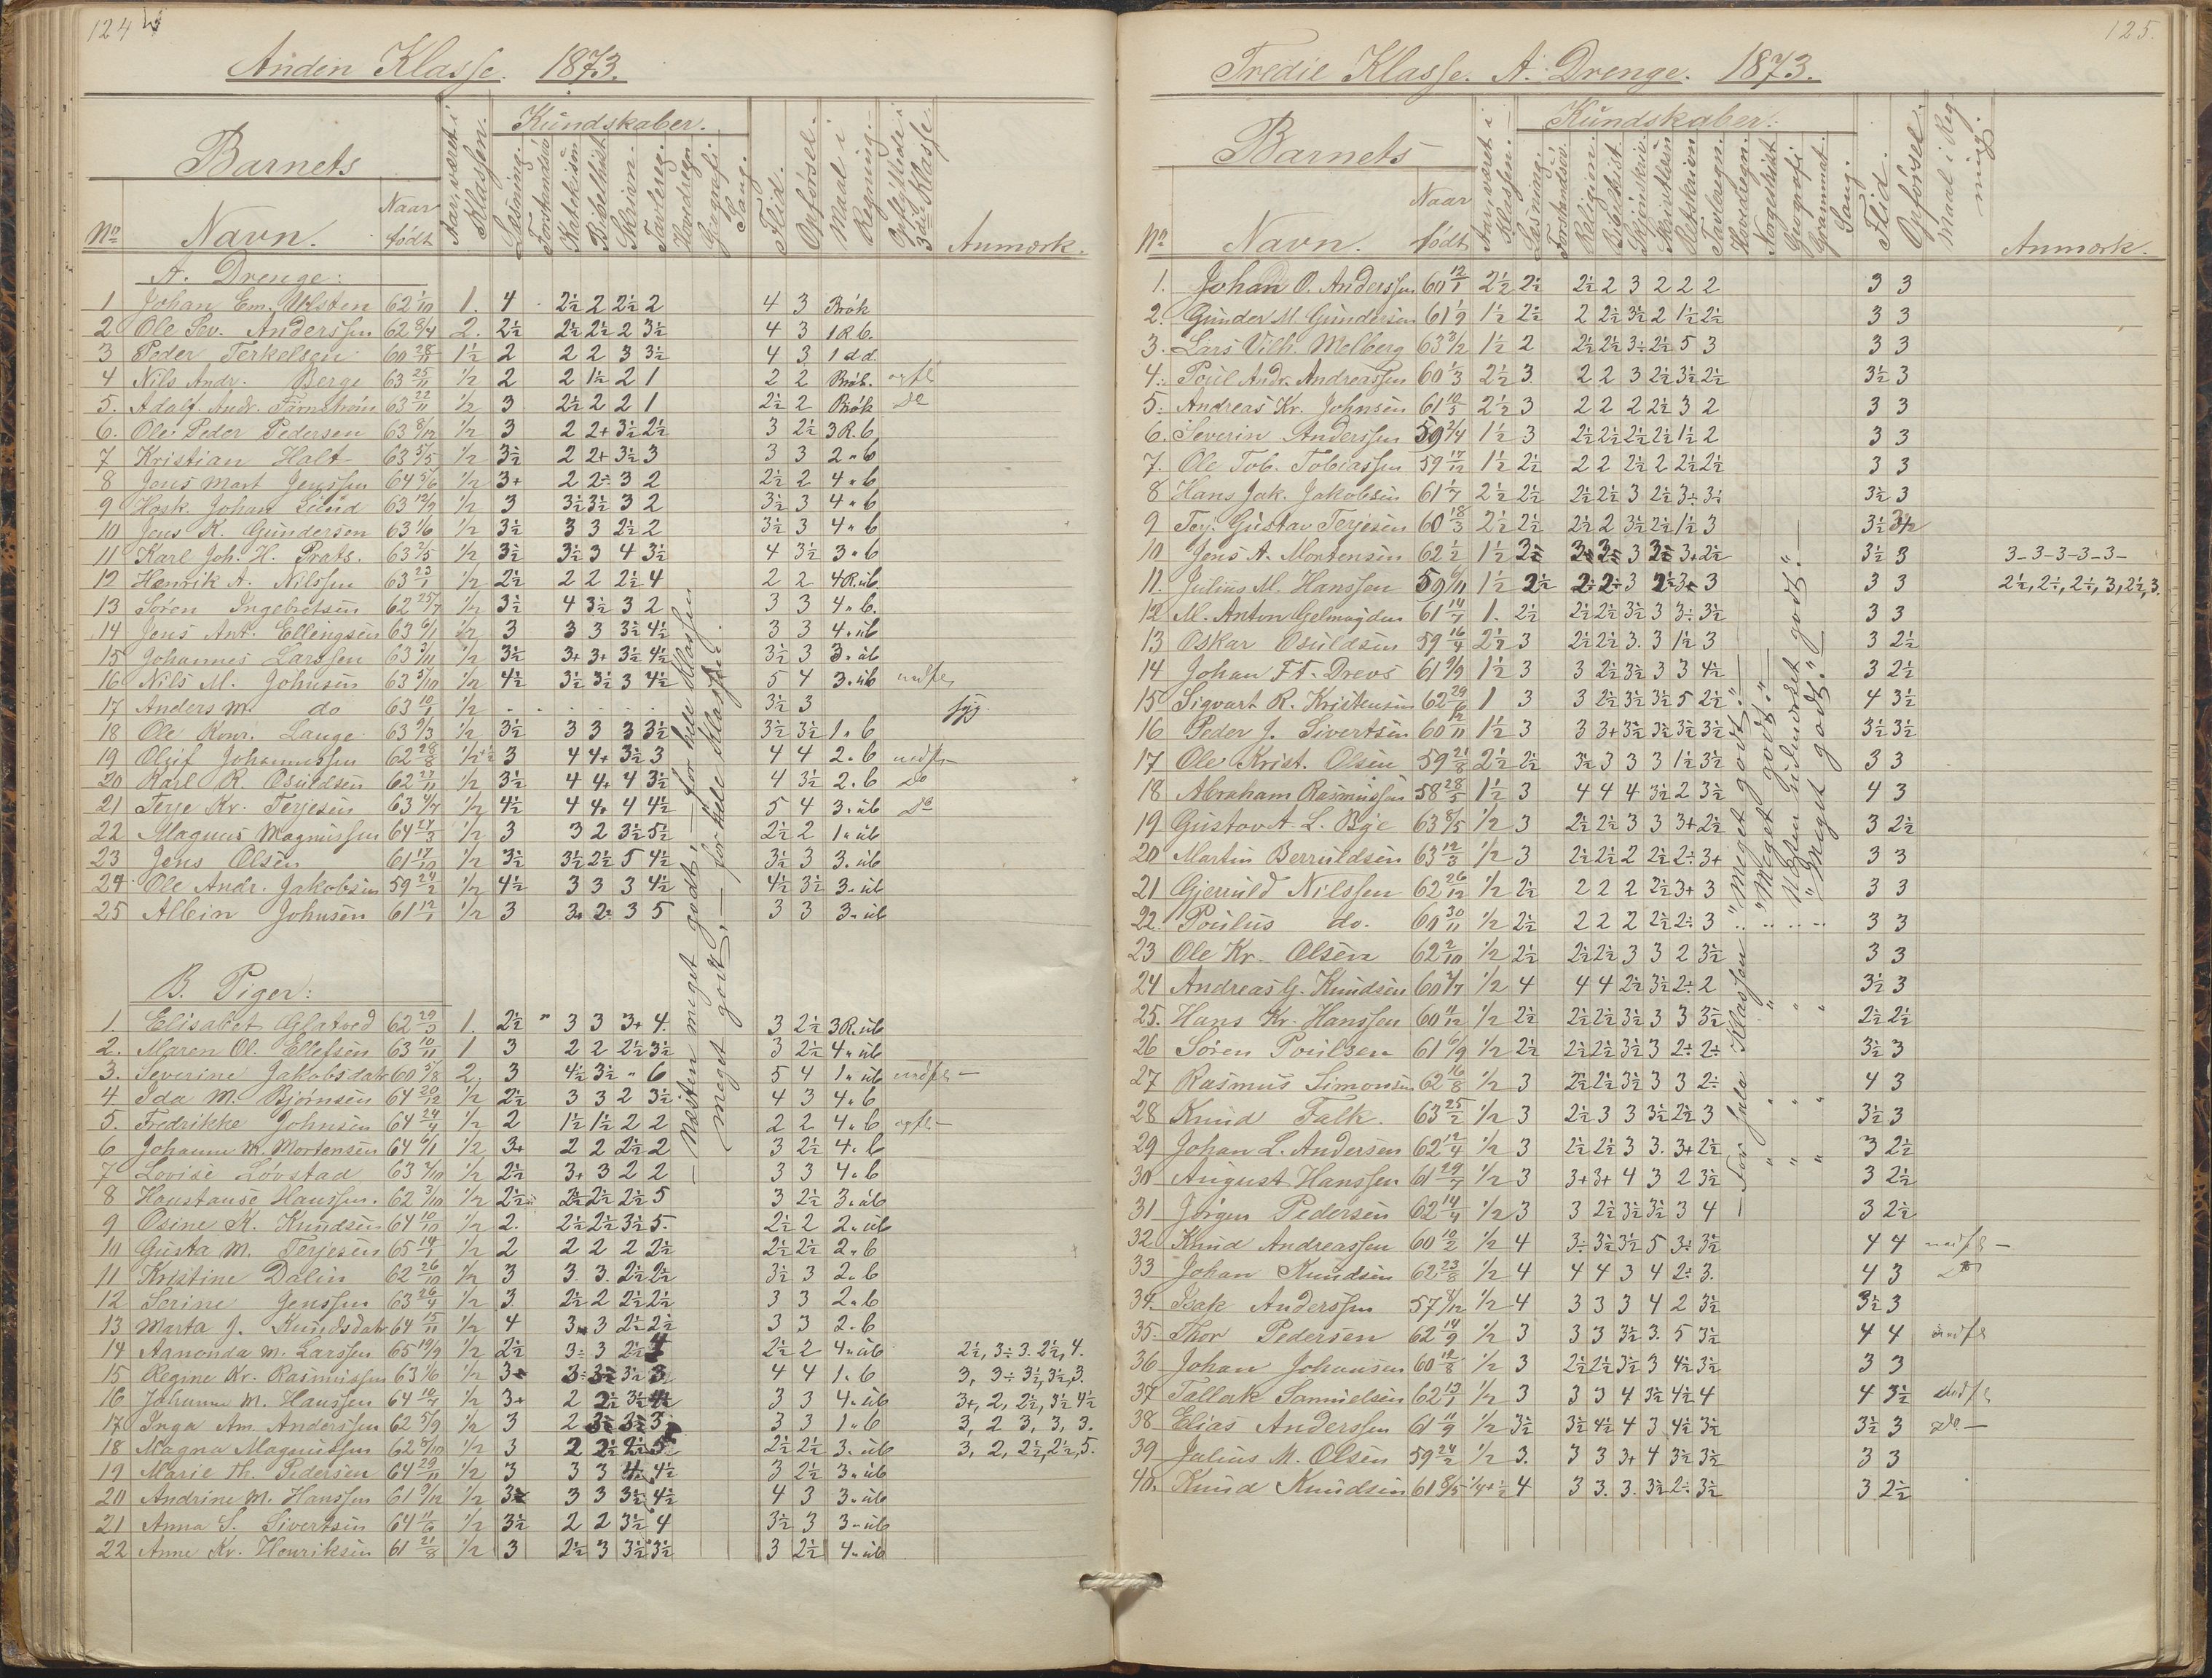 124
Anden Klasse. 1873.
Barnets
Kundskaber.
No
Navn.
Naar født
Aar, været i Klassen.
Læsning.
Forstandsøv.
Katekism
Bibelhist.
Skrivn.
Tavlereg.
Hovedregn
Geografi.
Sang.
Flid.
Opførsel.
Maal i Regning.
Opflyttede i 3die Klasse.
Anmærk.
A. Drenge:
1 Johan Em. Ulsten 62 1/10 1. 4 2½ 2 2½ 2 4 3 Brøk
2 Ole Sev. Anderssen 62 8/4 2. 2½ 2½ 2½ 2 3½ 4 3 1 R. b.
3 Peder Terkelsen 60 28/11 1½ 2 2 2 3 3½ 4 3 1 d d.
4 Nils Andr. Berge 63 25/11 ½ 2 2 1½ 2 1 2 2 Brøk. opfl
5. Adolf. Andr. Färnström 63 22/11 ½ 3 2½ 2 2 1 2½ 2 Brøk Do
6. Ole Peder Pedersen 63 8/12 ½ 3 2 2+ 3½ 2½ 3 2½ 3 R. b
7 Kristian Halt 63 5/5 ½ 3½ 2 2+ 3½ 3 3 3 2 " b
8 Jens Mart Jenssen 64 5/6 ½ 3+ 2 2÷ 3 2 2½ 2 4 " b
9 Hask. Johan Lund 63 13/9 ½ 3 3½ 3½ 3 2 3½ 3 4 " b
10 Jens K. Gundersen 63 1/6 ½ 3½ 3 3 2½ 2 3½ 3 4 " b
11 Karl Joh. H. Prats. 63 2/5 ½ 3½ 3½ 3 4 3½ 4 3½ 3 " b
12 Henrik A. Nilssen 63 23/1 ½ 2½ 2 2 2½ 4 2 2 4 R. ub
13 Søren Ingebretsen 62 25/7 ½ 3½ 4 3½ 3 2 3 3 4 " b.
14 Jens Ant. Ellingsen 63 6/1 ½ 3 3 3 3½ 4½ 3 3 4 " ub
15 Johannes Larssen 63 3/11 ½ 3½ 3+ 3+ 3½ 4½ 3½ 3 3 " ub
16 Nils M. Johnsen 63 5/10 ½ 4½ 3½ 3½ 3 4½ 5 4 3 " ub nedfl
17 Anders M. do 63 10/1 ½ 3½ 3 syg.
18 Ole Konr. Lauge 63 9/3 ½ 3½ 3 3 3 3½ 3½ 3½ 1 " b
19 Oluf Johannessen 62 28/8 ½+½ 3 4 4+ 3½ 3 4 4 2 " b nedfl
20 Karl R. Osuldsen 62 27/11 ½ 3½ 4 4+ 4 3½ 4 3½ 2 " b Do
21 Terje Kr. Terjesen 63 9/7 ½ 4½ 4 4+ 4 4½ 5 4 3 " ub Do
22 Magnus Magnussen 64 24/3 ½ 3 3 2 3½ 5½ 2½ 2 1 " ub
23 Jens Olsen 61 17/10 ½ 3½ 3½ 2½ 5 4½ 3½ 3 3 " ub
24 Ole Andr. Jakobsen 59 24/2 ½ 4½ 3 3 3 4½ 4½ 3½ 3 " ub
25 Albin Johnsen 61 12/1 ½ 3 3+ 2÷ 3 5 3 3 3 " ub
– Næsten meget godt, – for hele Klassen
meget godt, – for hele Klassen.
B. Piger:
1. Elisabet Glatved 62 29/3 1. 2½ " 3 3 3+ 4. 3 2½ 3 R. ub
2. Maren Ol. Ellefsen 63 10/11 1 3 2 2 2½ 3½ 3 2½ 4 " ub
3. Severine Jakobsdatr 60 3/8 2. 3 4½ 3½ " 6 5 4 1 " ub nedfl –
4 Ida M. Bjørnsen 64 20/12 ½ 2½ 3 3 2 3½ 4 3 4 " b
5. Fredrikke Johnsen 64 24/4 ½ 2 1½ 1½ 2 2 2 2 4 " b opfl –
6 Johanne M. Mortensen 64 6/1 ½ 3+ 2 2 2½ 2 3 2½ 4 " b
7 Lovise Løvstad 63 4/10 ½ 2½ 3+ 3 2 2 3 3 4 " b
8 Konstanse Hanssen. 62 3/10 ½ 2½ 2½ 2½ 2½ 5 3 2½ 3 " ub
9 Osine K. Knudsen 64 10/10 ½ 2. 2½ 2½ 3½ 5. 2½ 2 2 " ub
10 Gusta M. Terjesen 65 14/1 ½ 2 2 2 2 2½ 2½ 2½ 2 " b
11 Kristine Dalin 62 26/10 ½ 3 3. 3. 2½ 2½ 3½ 3 2 " b
12 Serine Jenssen 63 26/4 ½ 3 2½ 2 2½ 2½ 3 3 2 " b
13 Marta J. Knudsdatr 64 15/11 ½ 4 3 3 2½ 2½ 3 3 2 " b
14 Amonda M. Larssen 65 19/9 ½ 2½ 3÷ 3 2½ 4 2½ 2 4 " ub 2½, 3÷ 3. 2½, 4.
15 Regine Kr. Rasmussen 63 1/6 ½ 3 3÷ 3½ 3½ 3 4 4 1 " b 3, 3÷ 3½, 3½, 3.
16 Johanne M. Hanssen 64 10/7 ½ 3+ 2 2½ 3½ 4½ 3 3 4 " ub 3+, 2, 2½, 3½ 4½
17 Inga Am. Anderssen 62 5/9 ½ 3 2 3 3 3 3 3 1 " b 3, 2 3, 3, 3.
18 Magna Magnussen 62 8/10 ½ 3 2 2½ 2½ 5 2½ 2½ 3 " ub 3, 2, 2½, 2½, 5.
19 Marie Th. Pedersen 64 29/11 ½ 3 3 3 4 4½ 3 2½ 3 " ub
20 Andrine M. Hanssen 61 9/12 ½ 3 3 3 3½ 4½ 4 3 3 " ub
21 Anna S. Sivertsen 64 11/6 ½ 3½ 2 2 3½ 4 3½ 3 3 " ub
22 Anne Kr. Henriksen 61 21/8 ½ 3 2½ 3 3½ 3½ 3 2½ 4 " ub
– Næsten meget godt, – for hele Klassen
meget godt, – for hele Klassen.
125.
Tredie Klasse. A. Drenge. 1873.
Barnets
Kundskaber:
No
Navn.
Naar født
Aar, været i Klassen.
Læsning.
Forstandsøv.
Religion.
Bibelhist.
Skjønskriv.
Retskrivn
Tavleregn.
Hovedregn.
Norgeshist
Geografi
Grammat.
Sang.
Flid.
Opførsel.
Maal i Regning.
Anmærk.
1. Johan O. Anderssen 60 12/1 2½ 2½ 2½ 2 3 2 2 2 3 3
2. Gunder M. Gundersen 61 1/9 1½ 2½ 2 2½ 3½ 2 1½ 2½ 3 3
3. Lars Vilh. Melberg 63 3/2 1½ 2 2½ 2½ 3÷ 2½ 5 3 3 3
4. Poul Andr. Andreassen 60 1/3 2½ 3. 2 2 3 2½ 3½ 2½ 3½ 3
5. Andreas Kr. Johnsen 61 10/5 2½ 3 2 2 2 2½ 3 2 3 3
6. Severin Anderssen 59 2/4 1½ 3 2½ 2½ 2½ 2½ 1½ 2 3 3
7. Ole Tob. Tobiassen 59 17/12 1½ 2½ 2 2 2½ 2 2½ 2½ 3 3
8 Hans Jak. Jakobsen 61 1/7 2½ 2½ 2½ 2½ 3 2½ 3÷ 3÷ 3½ 3
9 Terj. Gustav Terjesen 60 18/3 2½ 2½ 2½ 2 3½ 2½ 1½ 3 3½ 3½
10 Jens A. Mortensen 62 1/2 1½ 3 3 3 3 3 3+ 2½ 3½ 3 3–3–3–3–3–
11. Julius M. Hanssen 59 6/11 1½ 2½ 2÷ 2÷ 3 2½ 3 3 3 3 2½, 2÷, 2÷, 3, 2½, 3.
12 M. Anton Gelmuyden 61 14/7 1. 2½ 2½ 2½ 3½ 3 3÷ 3½ 3 3
13 Oskar Osuldsen 59 16/4 2½ 3 2½ 2½ 3. 3 1½ 3 3 2½
14 Johan Ft. Drevs 61 9/9 1½ 3 3 2½ 3½ 3 3 4½ 3 2½
15 Sigvart R. Kristensen 62 29/6 1 3 3 2½ 3½ 3½ 5 2½ 4 3½
16 Peder J. Sivertsen 60 12/11 1½ 3 3 3+ 3½ 3½ 3½ 3½ 3½ 3½
17 Ole Krist. Olsen 59 21/8 2½ 2½ 3½ 3 3 3 1½ 3½ 3 3
18 Abraham Rasmussen 58 28/5 1½ 3 4 4 4 3½ 2 3½ 4 3
19 Gustav A. L. Bye 63 8/5 ½ 3 2½ 2½ 3 3 3+ 2½ 3 2½
20 Martin Berruldsen 63 12/3 ½ 3 2½ 2½ 2 2½ 2÷ 3+ 3 3
21 Gjeruld Nilssen 62 26/12 ½ 2½ 2 2 2 2½ 3+ 3 3 3
22. Poulus do. 60 30/11 ½ 2½ 2 2 2 2½ 2÷ 3 3 3
23 Ole Kr. Olsen 62 2/10 ½ 2½ 2½ 2½ 3 3 2 3½ 3 3
24 Andreas G. Knudsen 60 4/7 ½ 4 4 4 2½ 3½ 2÷ 2 3½ 3
25. Hans Kr. Hanssen 60 11/12 ½ 2½ 2½ 2½ 3½ 3 3 3½ 2½ 2½
26 Søren Poulsen 61 6/9 ½ 2½ 2½ 2½ 3½ 3 2÷ 2÷ 3½ 3
27 Rasmus Simonsen 62 16/8 ½ 3 2½ 2½ 3½ 3 3 2÷ 4 3
28 Knud Falk. 63 25/2 ½ 3 2½ 3 3 3½ 2½ 3 3½ 3
29 Johan L. Andersen 62 12/4 ½ 3 2½ 2½ 3 3. 3+ 2½ 3 2½
30 August Hanssen 61 29/7 ½ 3 3+ 3+ 4 3 2 3½ 3 2½
31 Jørgen Pedersen 62 14/4 ½ 3 3 2½ 3½ 3½ 3 4 3 2½
32 Knud Andreassen 60 10/2 ½ 4 3÷ 3½ 3½ 5 3÷ 3½ 4 4 nedfl –
33 Johan Knudsen 62 23/8 ½ 4 4 4 3 4 2÷ 3. 4 3 Do
34 Isak Anderssen 57 8/12 ½ 4 3 3 3 4 2 3½ 3½ 3
35. Thor Pedersen 62 14/9 ½ 3 3 3 3½ 3. 5 3½ 4 4 nedfl
36 Johan Johansen 60 12/8 ½ 3 2½ 2½ 3½ 3 4½ 3½ 3 3
37 Tallak Samuelsen 62 13/1 ½ 3 3 3 4 3½ 4½ 4 4 3½ nedfl
38 Elias Anderssen 61 11/9 ½ 3½ 3½ 4½ 4 3 4½ 3½ 3½ 3 Do –
39 Julius M. Olsen 59 24/2 ½ 3. 3 3 3+ 4 3½ 3½ 3 3
40. Knud Knudsen 61 8/5 ¼+½ 4 3 3. 3. 3½ 2÷ 3½ 3 2½
– For hele Klassen "Meget godt." –
" " "Meget godt." –
" " "Næsten udmærket godt." –
" " "Meget godt."